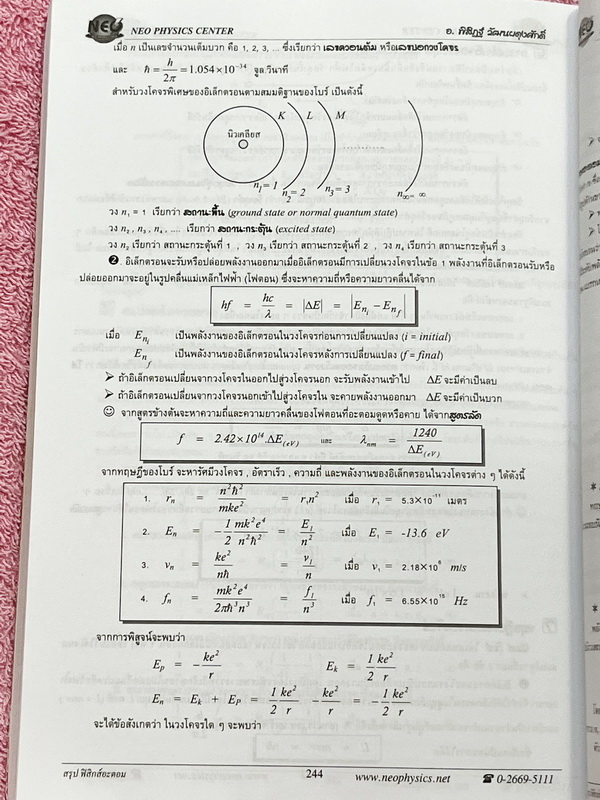 NEO PHYSICS CENTER อ. พิสิฏฐ์ วัฒนผดุงศักดิ์
เมื่อ n เป็นเลขจำนวนเต็มบวก คือ 1, 2, 3, ... ซึ่งเรียกว่า เลขควอนตัม หรือเลขบอกวงโคจร
และ ħ = h/2π = 1.054×10⁻³⁴ จูล.วินาที
สำหรับวงโคจรพิเศษของอิเล็กตรอนตามสมมติฐานของโบร์ เป็นดังนี้
K L M
นิวเคลียส
n₁= 1 n₂= 2 n₃= 3 n∞= ∞
วง n₁ = 1 เรียกว่า สถานะพื้น (ground state or normal quantum state)
วง n₂ , n₃ , n₄ , .... เรียกว่า สถานะกระตุ้น (excited state)
วง n₂ เรียกว่า สถานะกระตุ้นที่ 1 , วง n₃ เรียกว่า สถานะกระตุ้นที่ 2 , วง n₄ เรียกว่า สถานะกระตุ้นที่ 3
❷. อิเล็กตรอนจะรับหรือปล่อยพลังงานออกมาเมื่ออิเล็กตรอนมีการเปลี่ยนวงโคจรในข้อ 1 พลังงานที่อิเล็กตรอนรับหรือ
ปล่อยออกมาจะอยู่ในรูปคลื่นแม่เหล็กไฟฟ้า (โฟตอน) ซึ่งจะหาความถี่หรือความยาวคลื่นได้จาก
hf = hc/λ = |ΔE| = |Eₙᵢ − Eₙf|
เมื่อ Eₙᵢ เป็นพลังงานของอิเล็กตรอนในวงโคจรก่อนการเปลี่ยนแปลง (i = initial)
Eₙf เป็นพลังงานของอิเล็กตรอนในวงโคจรหลังการเปลี่ยนแปลง (f = final)
➢ ถ้าอิเล็กตรอนเปลี่ยนจากวงโคจรในออกไปสู่วงโคจรนอก จะรับพลังงานเข้าไป ΔE จะมีค่าเป็นลบ
➢ ถ้าอิเล็กตรอนเปลี่ยนจากวงโคจรนอกเข้าไปสู่วงโคจรใน จะคายพลังงานออกมา ΔE จะมีค่าเป็นบวก
☺ จากสูตรข้างต้นจะหาความถี่และความยาวคลื่นของโฟตอนที่อะตอมดูดหรือคาย ได้จากสูตรลัด
f = 2.42×10¹⁴ ΔE(eV) และ λnm = 1240/ΔE(eV)
จากทฤษฎีของโบร์ จะหารัศมีวงโคจร , อัตราเร็ว , ความถี่ และพลังงานของอิเล็กตรอนในวงโคจรต่าง ๆ ได้ดังนี้
1. rₙ = n²ħ²/mke² = r₁n² เมื่อ r₁ = 5.3×10⁻¹¹ เมตร
2. Eₙ = −1/2 mk²e⁴/n²ħ² = E₁/n² เมื่อ E₁ = -13.6 eV
3. vₙ = ke²/nħ = v₁/n เมื่อ v₁ = 2.18×10⁶ m/s
4. fₙ = mk²e⁴/2πħ³n³ = f₁/n³ เมื่อ f₁ = 6.55×10¹⁵ Hz
จากการพิสูจน์จะพบว่า
Eₚ = − ke²/r Eₖ = 1/2 ke²/r
Eₙ = Eₖ + Eₚ = 1/2 ke²/r − ke²/r = − 1/2 ke²/r
จะได้ข้อสังเกตว่า ในวงโคจรใด ๆ จะพบว่า
สรุป ฟิสิกส์อะตอม 244 www.neophysics.net ☎ 0-2669-5111